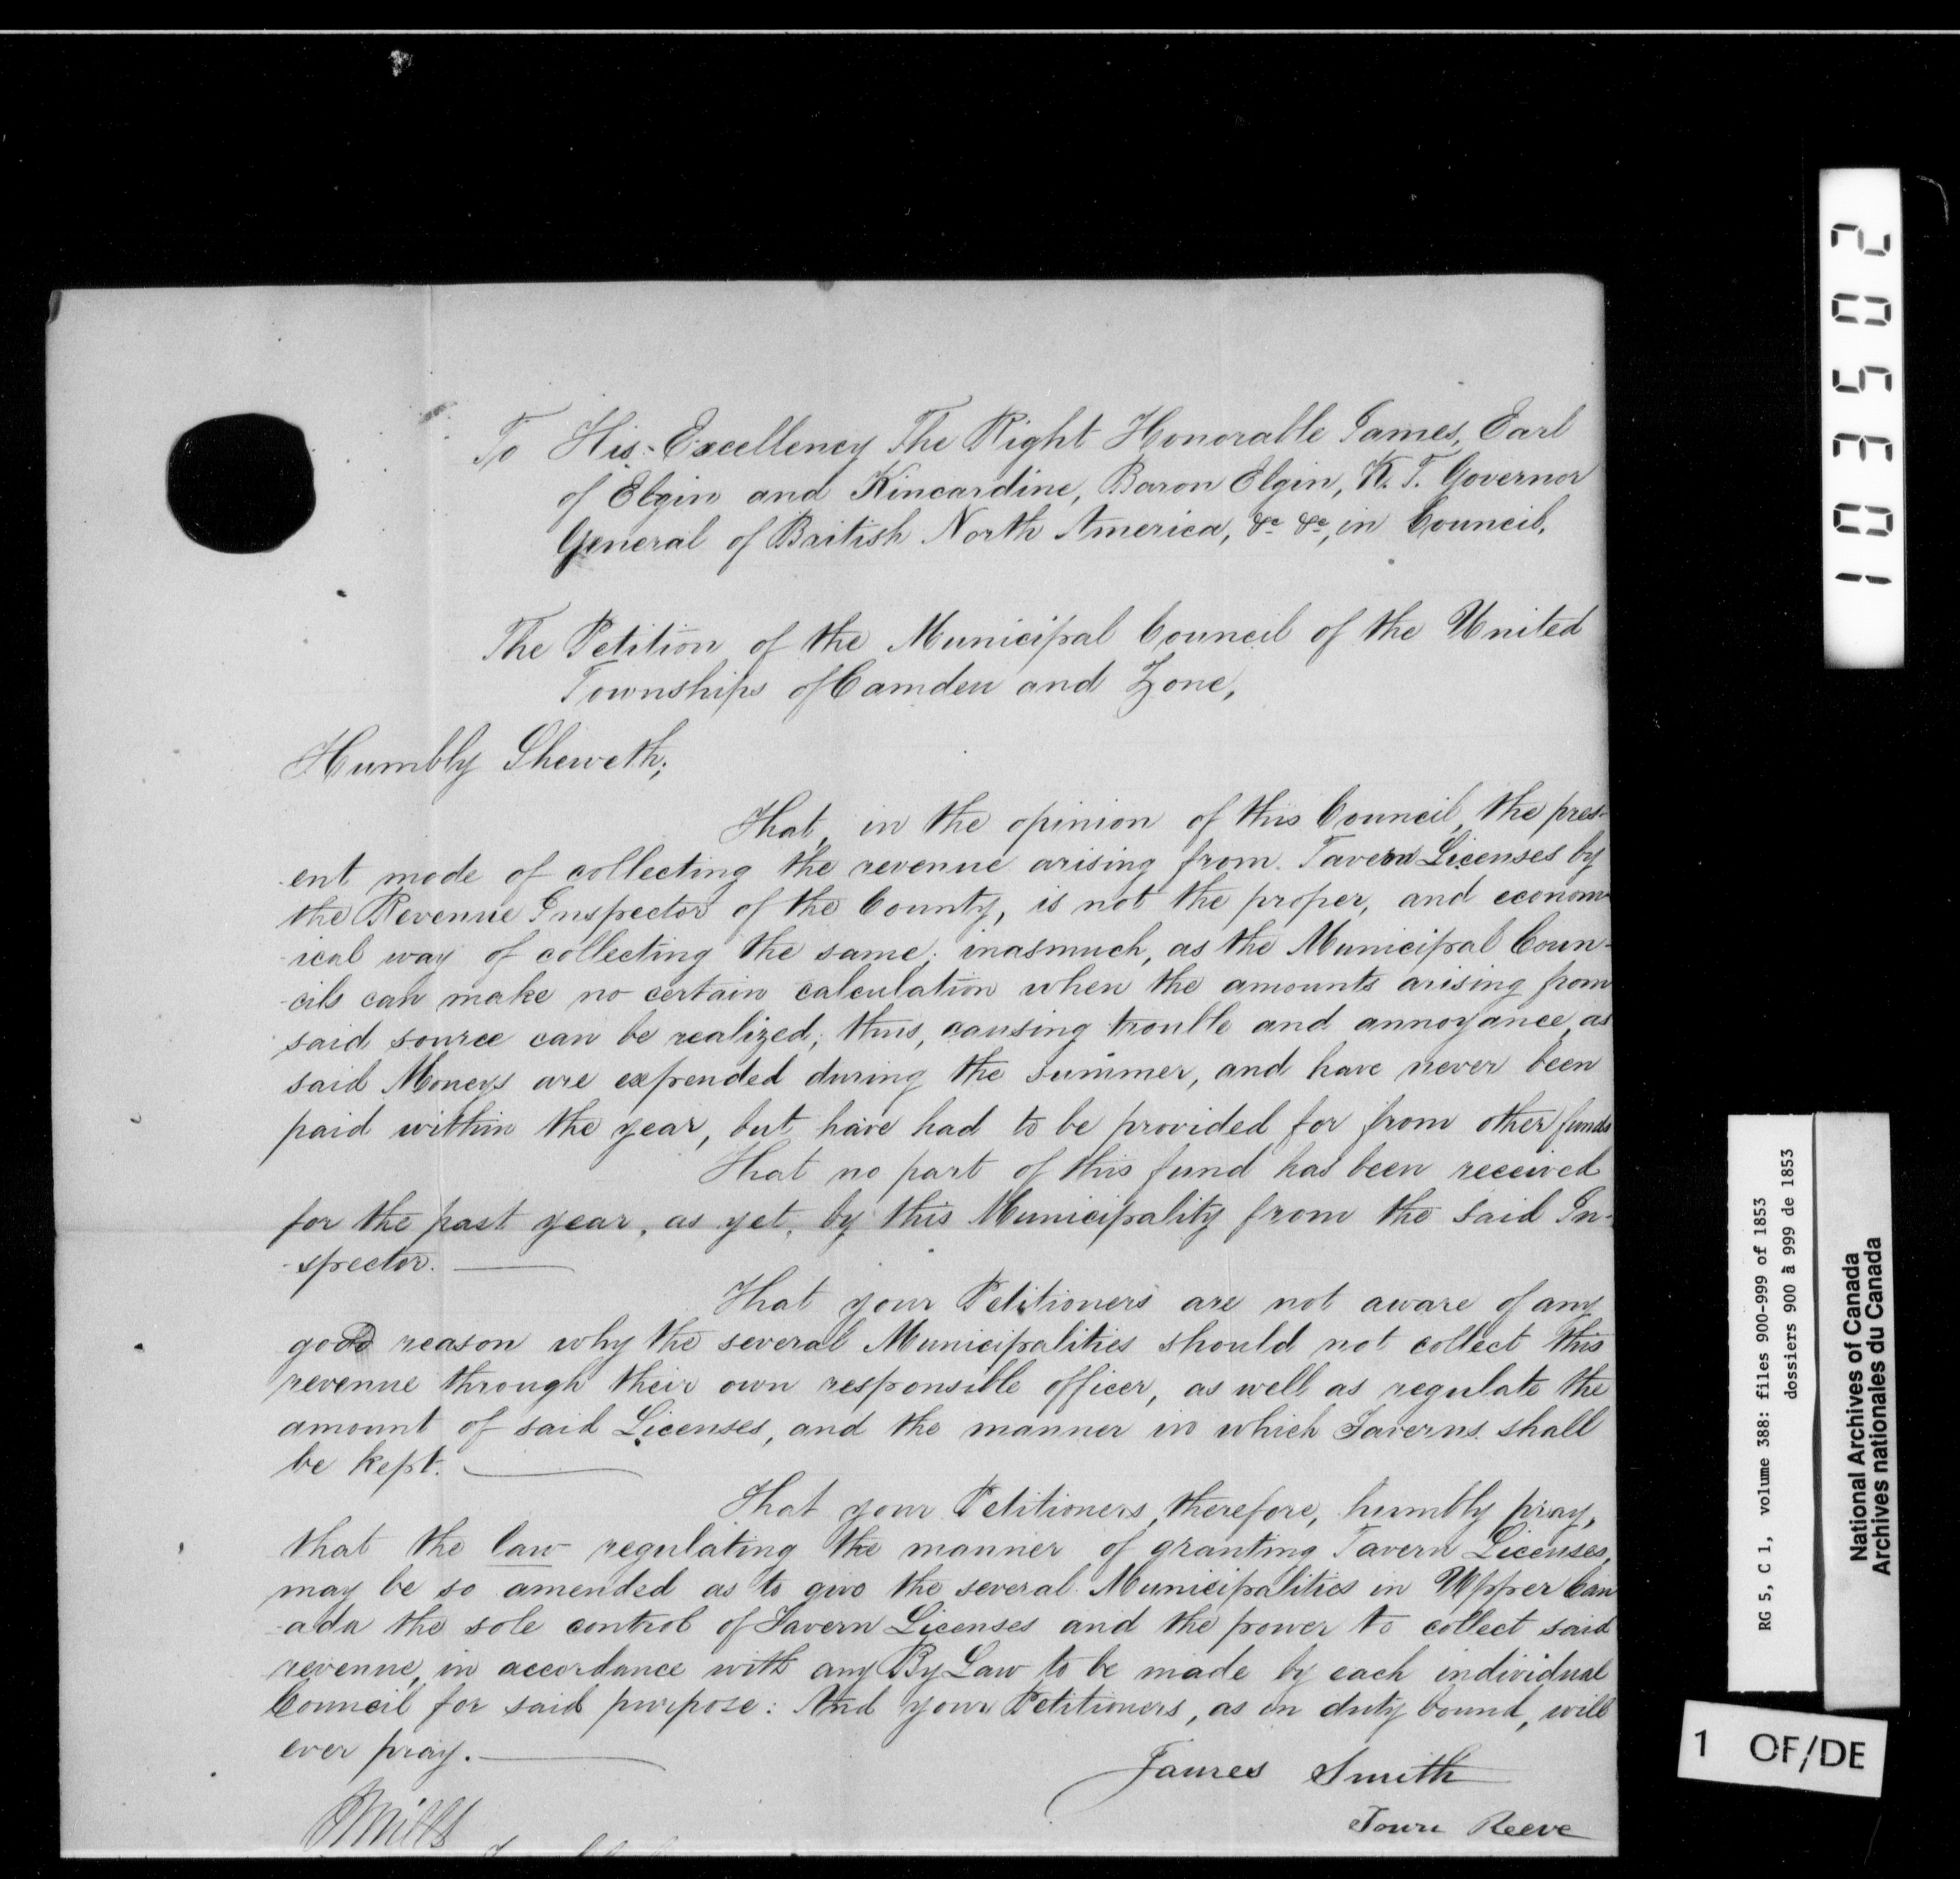 To His Excellency The Right Honorable James, Earl
of Elgin and Kincardine, Baron Elgin, K. T. Governor
General of British North America, &c &c, in Council.
The Petition of the Municipal Council of the United
Townships of Camden and Zone,
Humbly Sheweth;
That, in the opinion of this Council, the pres-
ent mode of collecting the revenue arising from Tavern Licenses by
the Revenue Inspector of the County, is not the proper, and econom-
ical way of collecting the same; inasmuch, as the Municipal Coun-
-cils can make no certain calculation when the amounts arising from
said source can be realized; thus, causing trouble and annoyance, as
said Moneys are expended during the summer, and have never been
paid within the year, but have had to be provided for from other funds
That no part of this fund has been received
for the past year, as yet, by this Municipality from the said In-
-spector.
That your Petitioners are not aware of any
good reason why the several Municipalities should not collect this
revenue through their own responsible officer, as well as regulate the
amount of said Licenses, and the manner in which Taverns shall
be kept.
That your Petitioners, therefore, humbly pray,
that the law regulating the manner of granting Tavern Licenses,
may be so amended as to give the several Municipalities in Upper Can
-ada the sole control of Tavern Licenses and the power to collect said
revenue, in accordance with any By Law to be made by each individual
Council for said purpose: And your Petitioners, as in duty bound, will
ever pray.
James Smith
Town Reeve
Mills
103502
RG 5, C 1, volume 388: files 900-999 of 1853
dossiers 900 à 999 de 1853
National Archives of Canada
Archives nationales du Canada
1 OF/DE